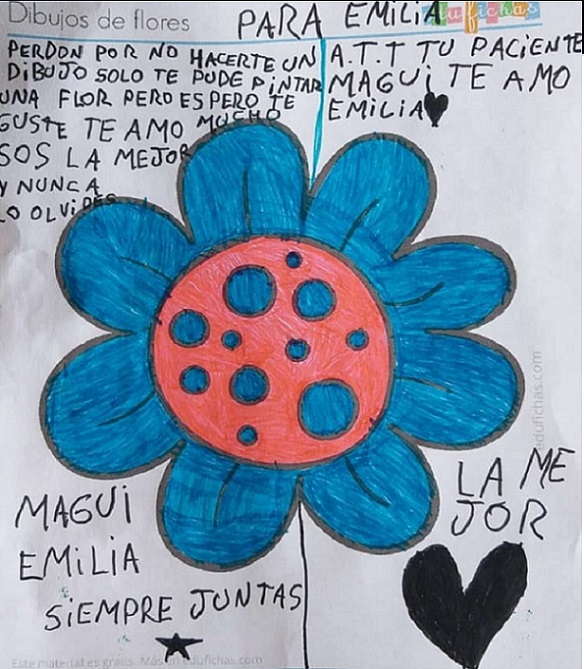 Dibujos de flores
PARA EMILIA
edufichas
PERDON POR NO HACERTE UN
DIBUJO SOLO TE PUDE PINTAR
UNA FLOR PERO ESPERO TE
GUSTE TE AMO MUCHO
SOS LA MEJOR
Y NUNCA
LO OLVIDES
A.T.T TU PACIENTE
MAGUI TE AMO
EMILIA
MAGUI
EMILIA
SIEMPRE JUNTAS
LA ME
JOR
edufichas.com
Este material es gratis. Más en edufichas.com